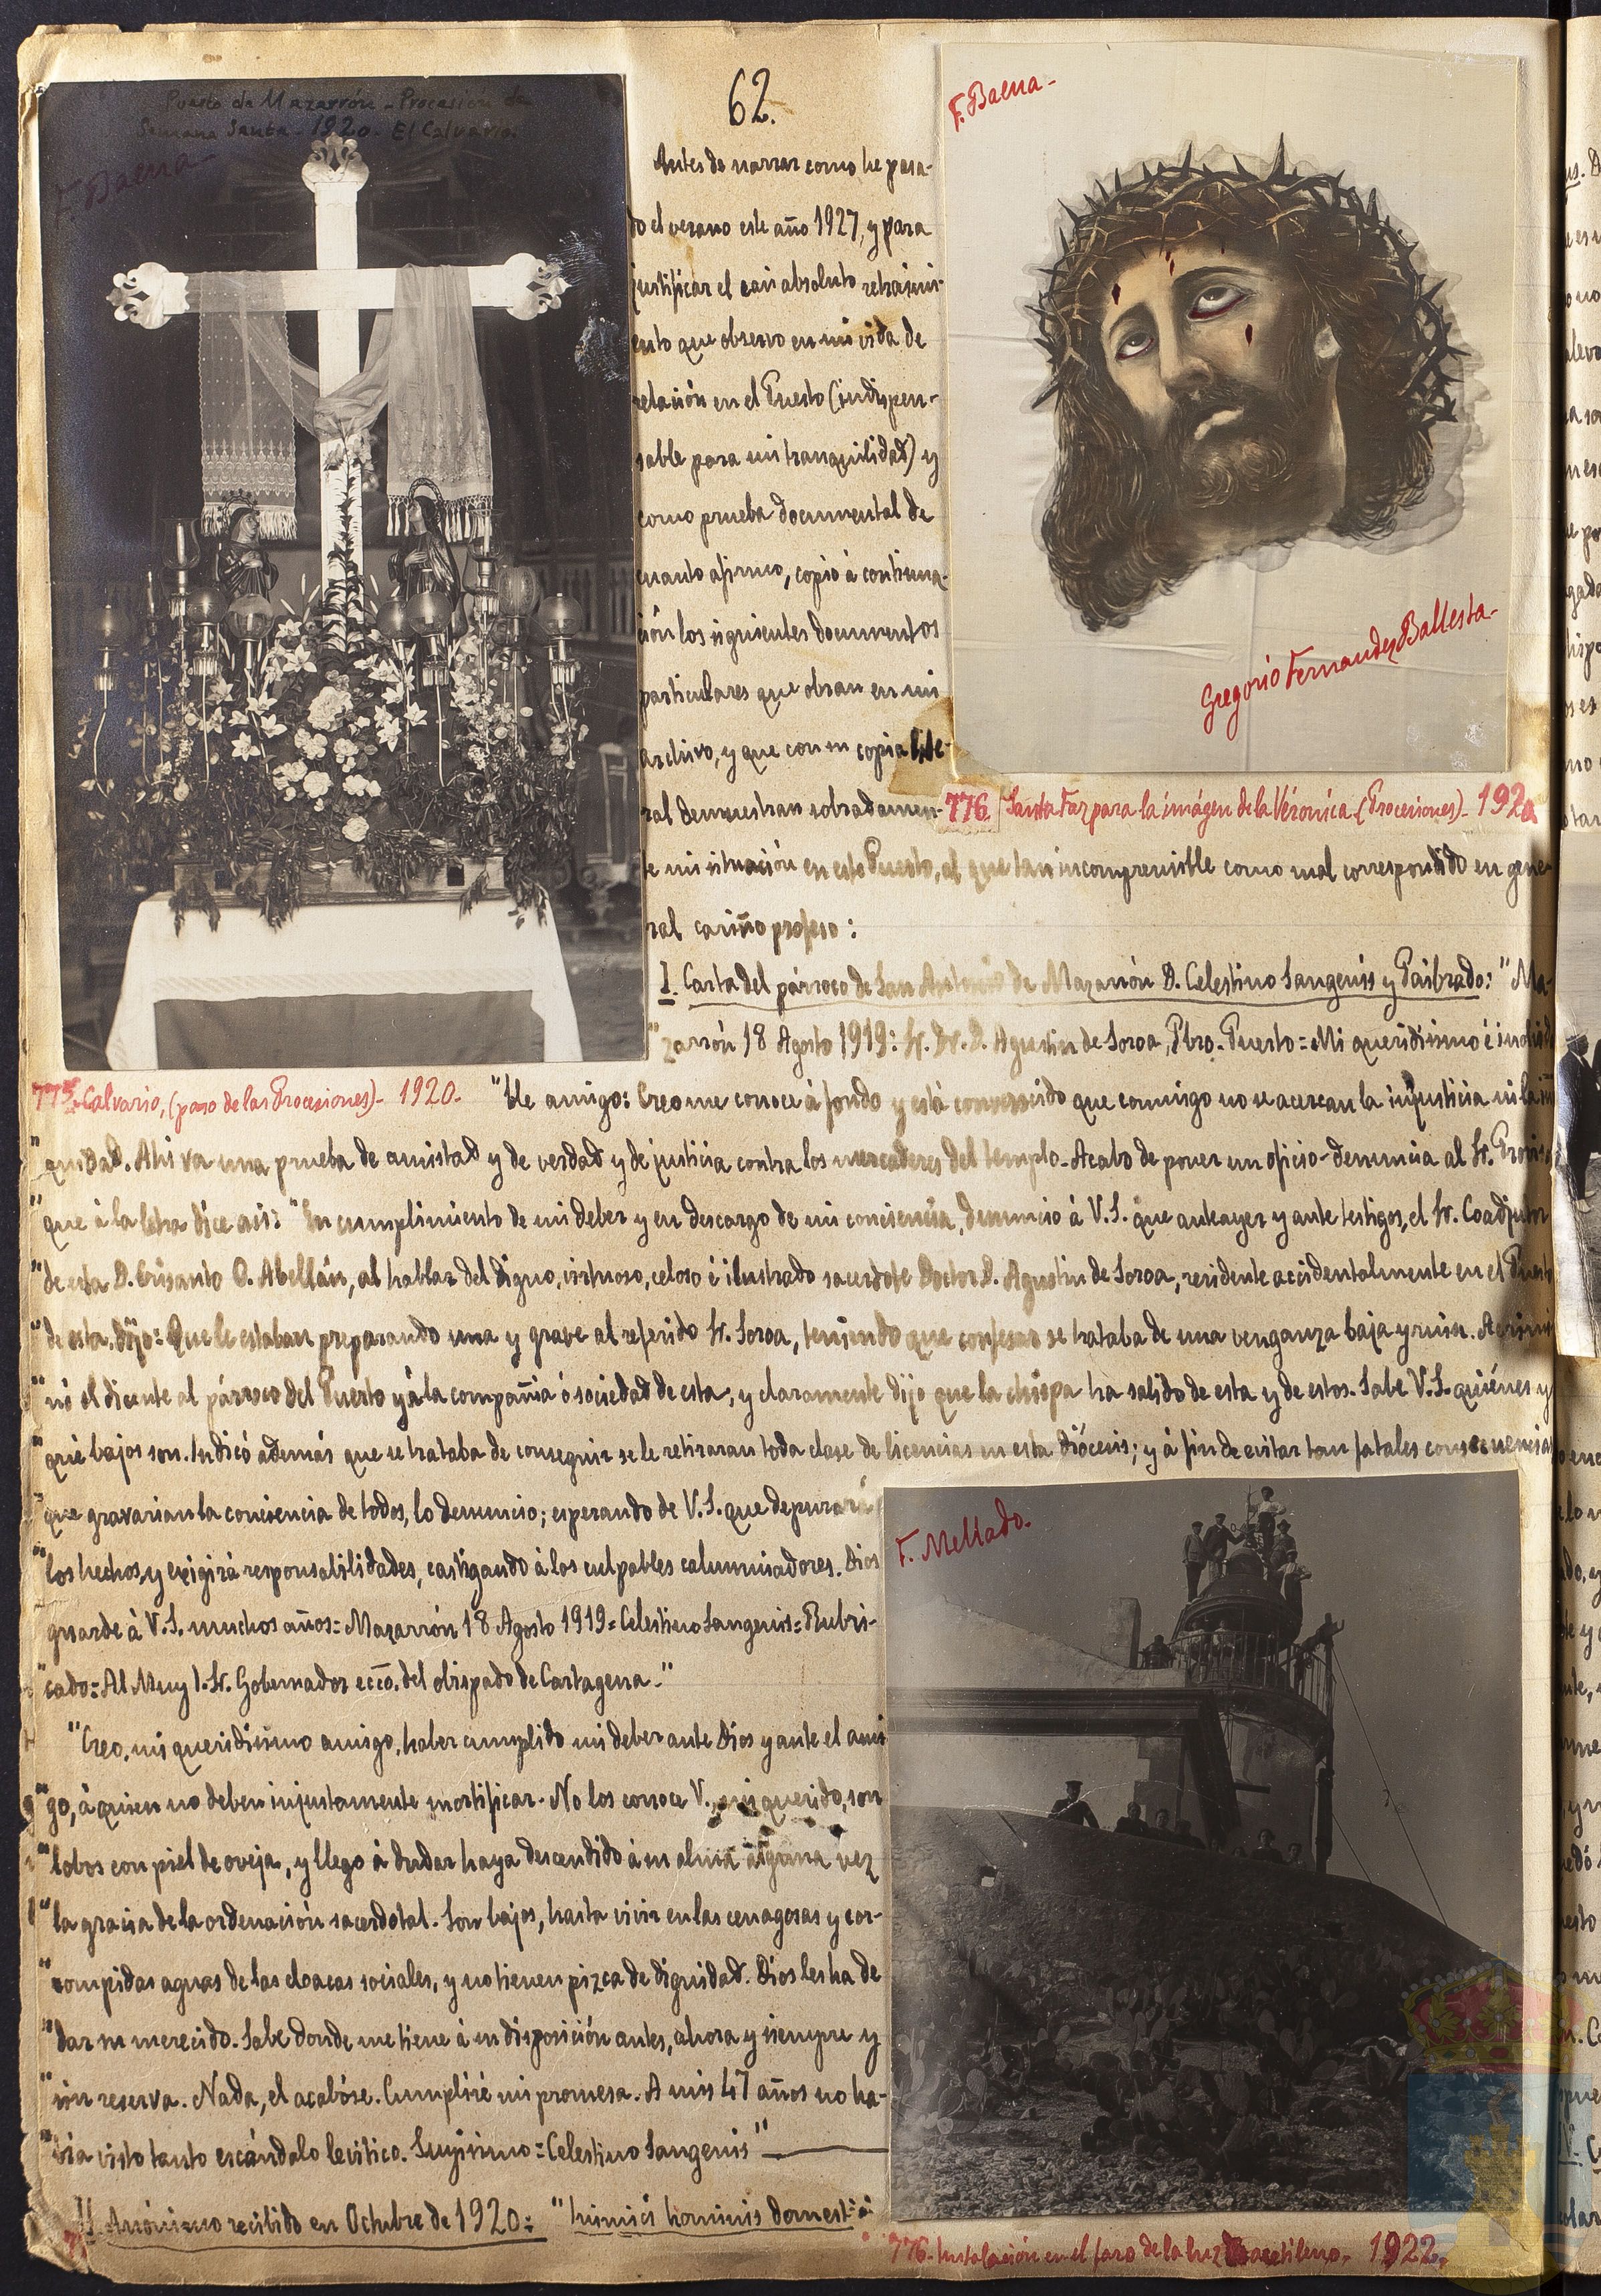 62.
Puerto de Mazarrón - Procesión de
Semana Santa - 1920. El Calvario.
F. Baena-
F. Baena-
Gregorio Fernandez Ballesta-
Antes de narrar como he pasa-
do el verano este año 1927, y para
justificar el casi absoluto retraimi-
ento que observo en mi vida de
relación en el Puerto (indispen-
sable para mi tranquilidad) y
como prueba documental de
cuanto afirmo, copio à continua-
ción los siguientes documentos
particulares que obran en mi
archivo, y que con su copia lite-
ral demuestran sobradamen-
776. Santa Faz para la imágen de la Véronica (Procesiones)- 1920
te mi situación en este Puerto, al que tan incomprensible como mal correspondido en gene-
ral cariño profeso:
I. Carta del párroco de San Antonio de Mazarrón D. Celestino Sangenis y Paibrado: "Ma-
"zarrón 18 Agosto 1919: Sr. Dr. D. Agustin de Soroa, Pbro. Puerto = Mi queridisimo é inolvida
775. Calvario, (paso de las Procesiones)- 1920.
"ble amigo: Creo me conoce à fondo y está convencido que conmigo no se acercan la injusticia ni la ini
"quidad. Ahi va una prueba de amistad y de verdad y de justicia contra los mercaderes del templo. Acabo de poner un oficio-denuncia al Sr. Proviso
"que à la letra dice asi: "En cumplimiento de mi deber y en descargo de mi conciencia, denuncio à V.S. que anteayer y ante testigos, el Sr. Coadjutor
"de esta D. Crisanto O. Abellán, al hablar del digno, virtuoso, celoso é ilustrado sacerdote Doctor D. Agustin de Soroa, residente accidentalmente en el Puerto
"de esta, dijo: Que le estaban preparando una y grave al referido Sr. Soroa, teniendo que confesar se trataba de una venganza baja y ruin. Acrimi
"nó el dicente al párroco del Puerto y à la compañia ó sociedad de esta, y claramente dijo que la chispa ha salido de esta y de estos. Sabe V.S. quiénes y
"qué bajos son. Indicó además que se trataba de conseguir se le retiraran toda clase de licencias en esta diócesis; y à fin de evitar tan fatales consecuencias
"que gravarian la conciencia de todos, lo denuncio; esperando de V.S. que depurará
"los hechos, y exigirà responsabilidades, castigando à los culpables calumniadores. Dios
"guarde à V.S. muchos años = Mazarrón 18 Agosto 1919 = Celestino Sangenis = Rubri-
"cado = Al Muy I. Sr. Gobernador ecco. del obispado de Cartagena."
"Creo, mi queridisimo amigo, haber cumplido mi deber ante Dios y ante el ami
"go, à quien no deben injustamente mortificar. No los conoce V., mi querido, son
"lobos con piel de oveja, y llego à dudar haya descendido à su alma alguna vez
"la gracia de la ordenación sacerdotal. Son bajos, hasta vivir en las cenagosas y cor-
"rompidas aguas de las cloacas sociales, y no tienen pizca de dignidad. Dios les ha de
"dar su merecido. Sabe donde me tiene à su disposición antes, ahora y siempre y
"sin reserva. Nada, el acabóse. Cumpliré mi promesa. A mis 47 años no ha-
"bia visto tanto escándalo levitico. Suyisimo = Celestino Sangenis"
II. Anónimo recibido en Octubre de 1920: "Inimici hominis domesti
F. Mellado.
776. Instalación en el faro de la luz acetileno. 1922.